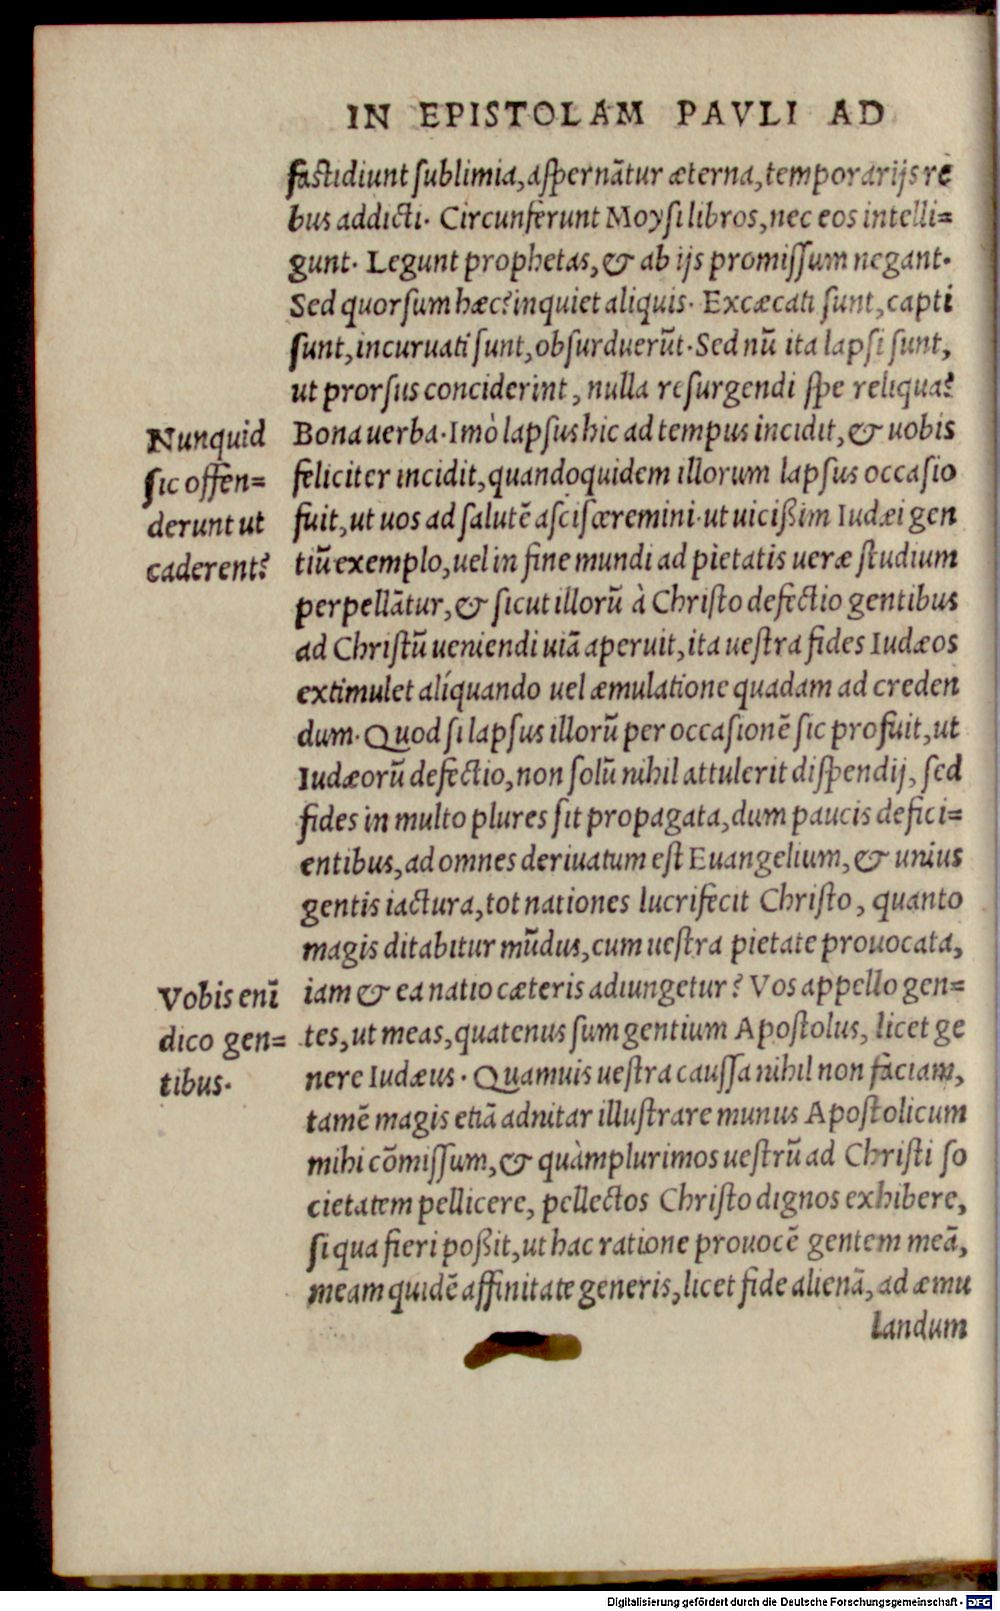 IN EPISTOLAM PAVLI AD
fastidiunt sublimia, aspernãtur æterna, temporarijs re
bus addicti. Circunferunt Moysi libros, nec eos intelli=
gunt. Legunt prophetas, & ab ijs promissum negant.
Sed quorsum hæc? inquiet aliquis. Excæcati sunt, capti
sunt, incuruati sunt, obsurduerũt. Sed nũ ita lapsi sunt,
ut prorsus conciderint, nulla resurgendi spe reliqua?
Nunquid
sic offen=
derunt ut
caderent?
Bona uerba. Imò lapsus hic ad tempus incidit, & uobis
feliciter incidit, quandoquidem illorum lapsus occasio
fuit, ut uos ad salutẽ ascisceremini. ut uicißim Iudæi gen
tiũ exemplo, uel in fine mundi ad pietatis ueræ studium
perpellãtur, & sicut illorũ à Christo defectio gentibus
ad Christũ ueniendi uiã aperuit, ita uestra fides Iudæos
extimulet alíquando uel æmulatione quadam ad creden
dum. Quod si lapsus illorũ per occasionẽ sic profuit, ut
Iudæorũ defectio, non solũ nihil attulerit dispendij, sed
fides in multo plures sit propagata, dum paucis defici=
entibus, ad omnes deriuatum est Euangelium, & unius
gentis iactura, tot nationes lucrifecit Christo, quanto
magis ditabitur mũdus, cum uestra pietate prouocata,
Vobis enĩ
dico gen=
tibus.
iam & ea natio cæteris adiungetur? Vos appello gen=
tes, ut meas, quatenus sum gentium Apostolus, licet ge
nere Iudæus. Quamuis uestra caussa nihil non faciam,
tamẽ magis etiã adnitar illustrare munus Apostolicum
mihi cõmissum, & quàmplurimos uestrũ ad Christi so
cietatem pellicere, pellectos Christo dignos exhibere,
si qua fieri poßit, ut hac ratione prouocẽ gentem meã,
meam quidẽ affinitate generis, licet fide alienã, ad æmu
landum
Digitalisierung gefördert durch die Deutsche Forschungsgemeinschaft - DFG